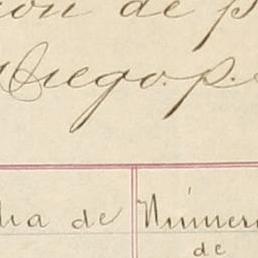 ión de p
Diego. p.
ha de Número
de